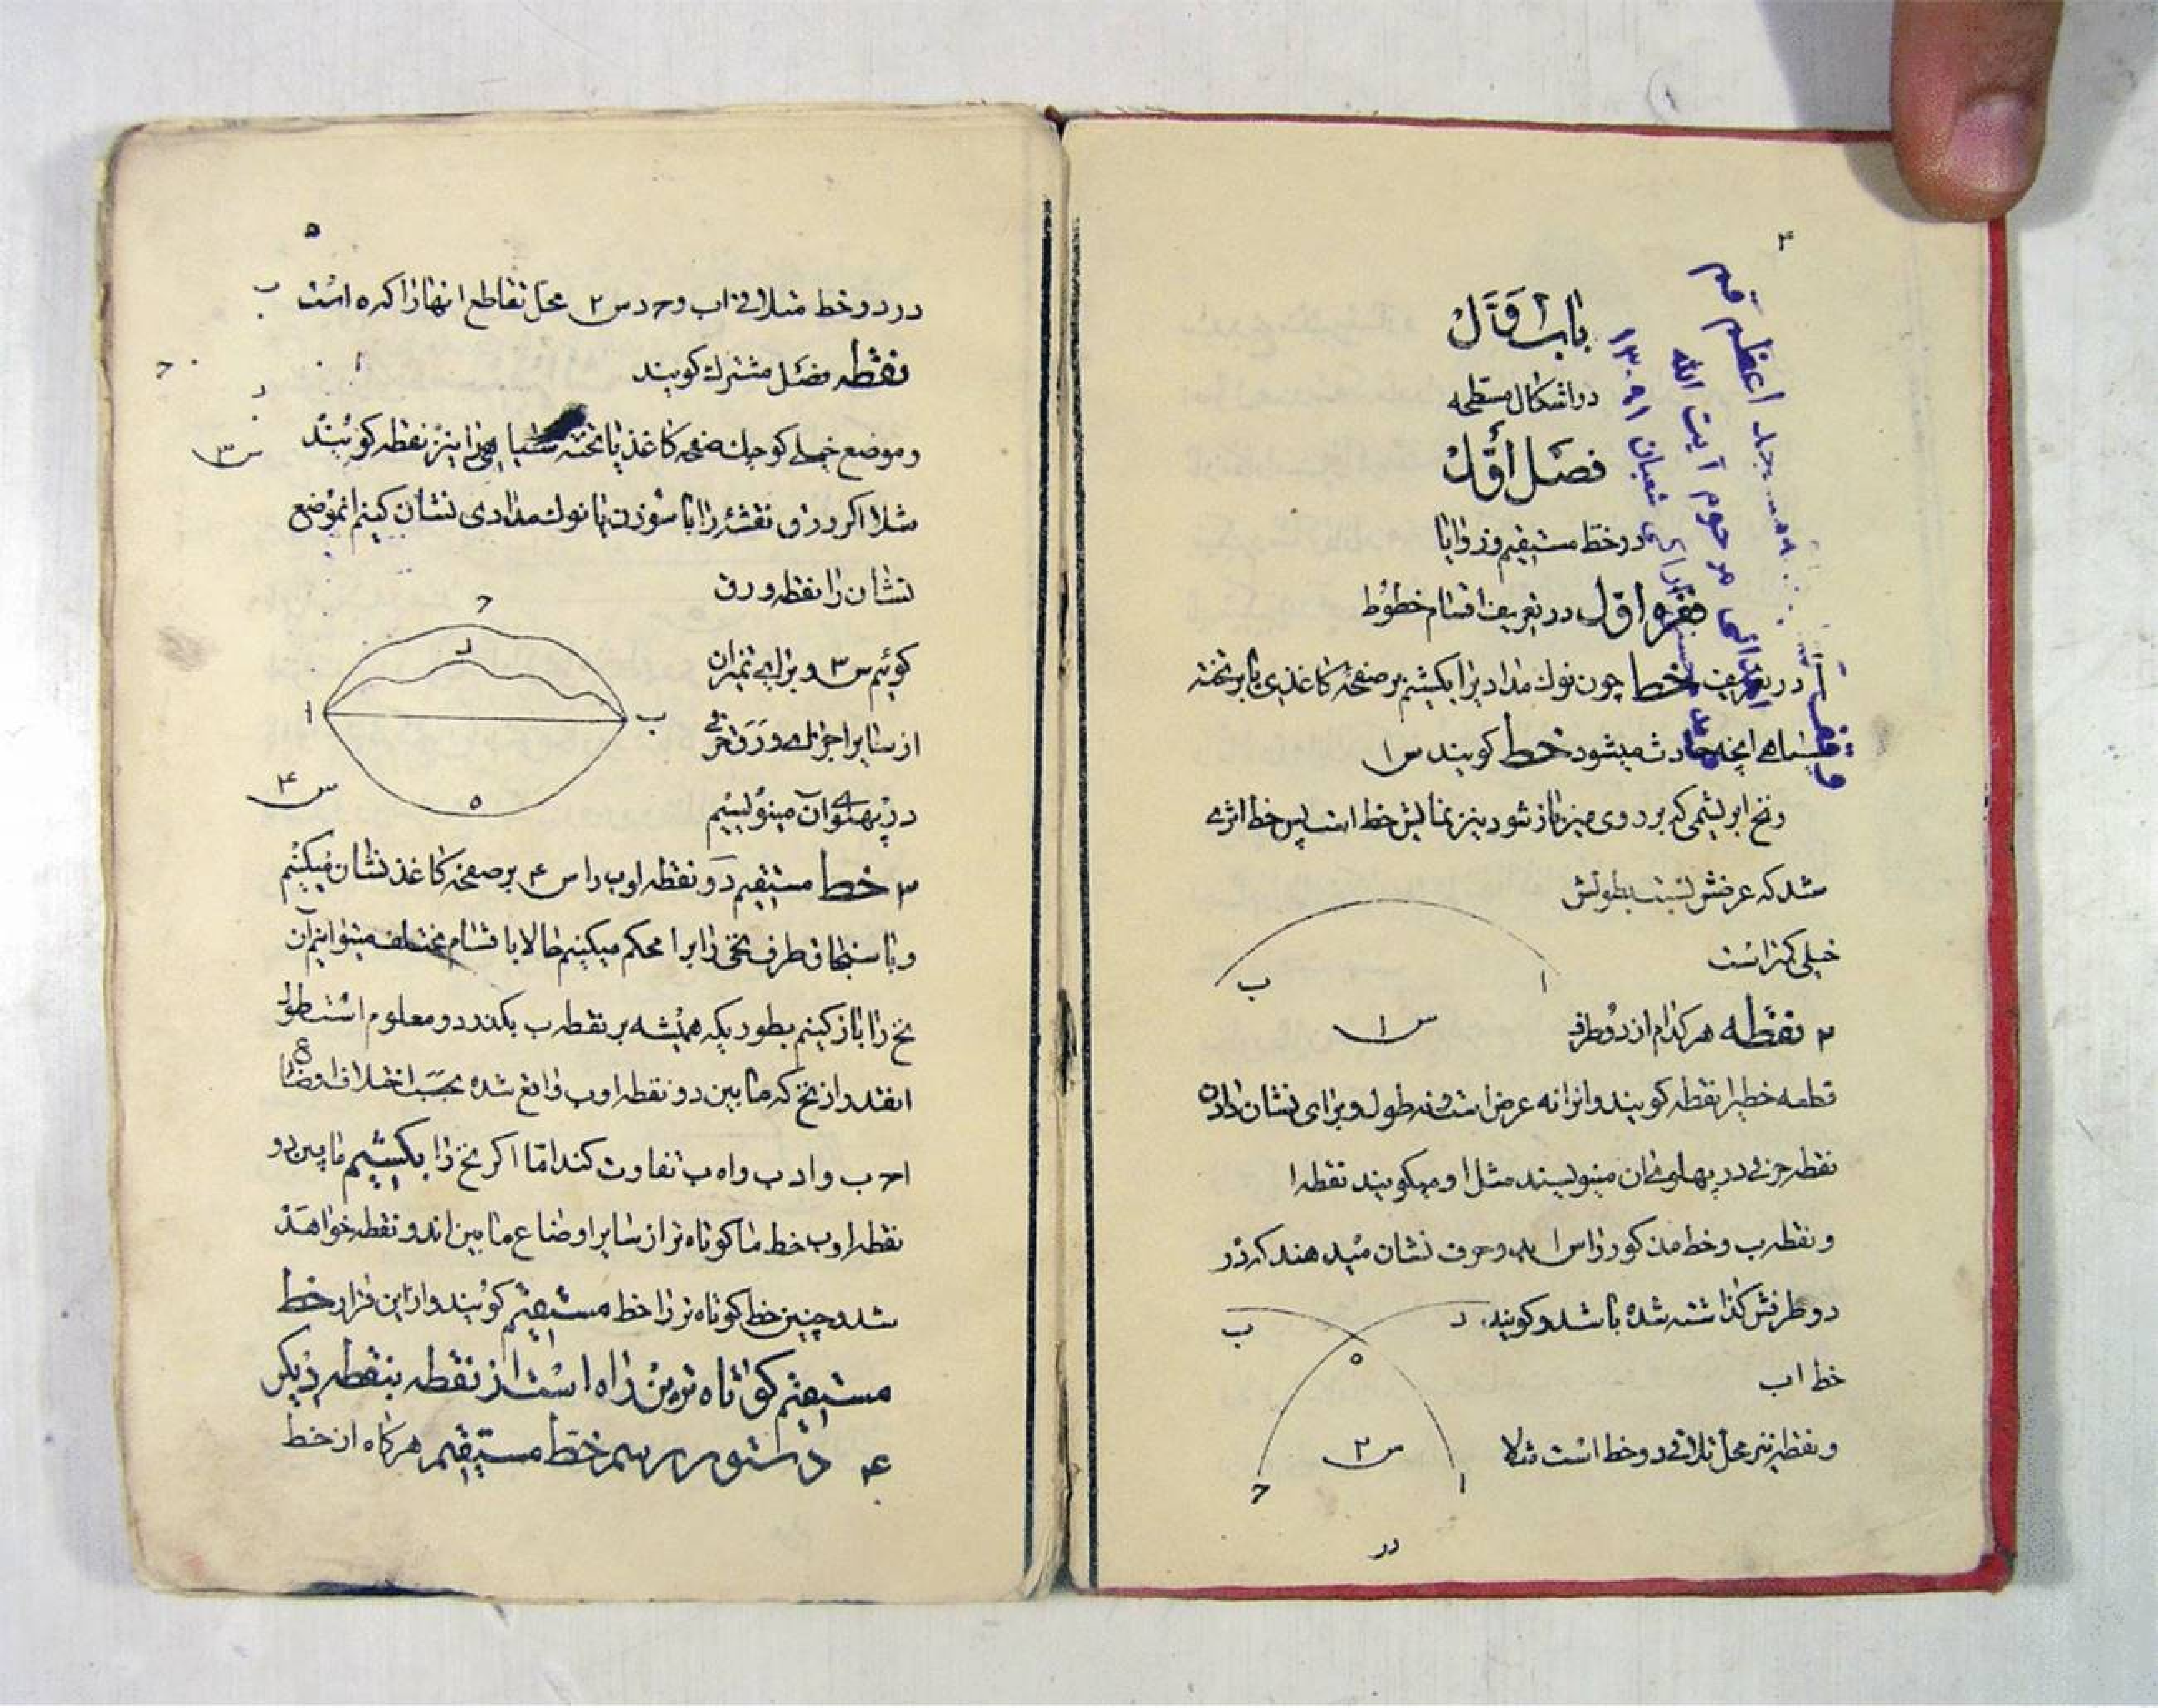 ۴
باب اوّل
در اشکال مسطحه
فصل اوّل
در خط مستقیم و زوایا
فقره اوّل در تعریف اقسام خطوط
۱ در تعریف خط چون نوک مدادیرا بکشیم بر صفحهٔ کاغذی یا بر تخته
سیاهی انچه حادث میشود خط کویند س ۱
و نخ ابریشمی که بر روی میز باز شود نیز نمایش خط است پس خط اثری
شد که عرضش نسبت بطولش
خیلی کمتر است
ا
ب
س ۱
۲ نقطه هر کدام از دو طرف
قطعه خطیرا نقطه کویند و انرا نه عرض است و نه طول و برای نشان دادن
نقطه حرفی در پهلوی ان مینویسند مثل ا و میکویند نقطه ا
و نقطه ب و خط مذکور را س ۱ بدو حرف نشان میدهند که در
دو طرفش کذاشته شده باشد و کویند
خط اب
و نقطه نیز محل تلاقی دو خط است مثلا
د
ب
ه
س ۲
ا
ح
در
وقف
اعظم قم
مرحوم آیت الله
شعبان ۱۳۰۹۱
۵
در دو خط متلاقی اب و ح د س ۲ محل تقاطع انها را که ه است
نقطه فصل مشترک کویند
و موضع خیلی کوچک صفحه کاغذ یا تخته سیاهی را نیز نقطه کویند
مثلا اکر ورق نقشهٔ را با سوزن یا نوک مدادی نشان کنیم انموضع
نشان را نقطه ورق
کوئیم س ۳ و برای تمیز ان
از سایر اجزای ورق حرفی
در پهلوی آن مینویسیم
ب
ا
ح
د
س ۳
ح
د
ا
ب
ه
س ۴
۳ خط مستقیم دو نقطه ا و ب را س ۴ بر صفحه کاغذ نشان میکنیم
و با سنجاق طرف نخی را بر ا محکم میکنیم حالا باقسام مختلفه میتوانیم آن
نخ را باز کنیم بطوریکه همیشه بر نقطه ب بکذرد و معلوم است طول
انقدر از نخ که مابین دو نقطه ا و ب واقع شده بحسب اختلاف اوضاع
ا ح ب و ا د ب و ا ه ب تفاوت کند امّا اکر نخ را بکشیم مابین دو
نقطه ا و ب خط ما کوتاه تر از سایر اوضاع مابین اندو نقطه خواهد
شد و چنین خط کوتاه تر را خط مستقیم کویند و از این قرار خط
مستقیم کوتاه ترین راه است از نقطه بنقطه دیکر
۴ دستور رسم خط مستقیم هر کاه از خط